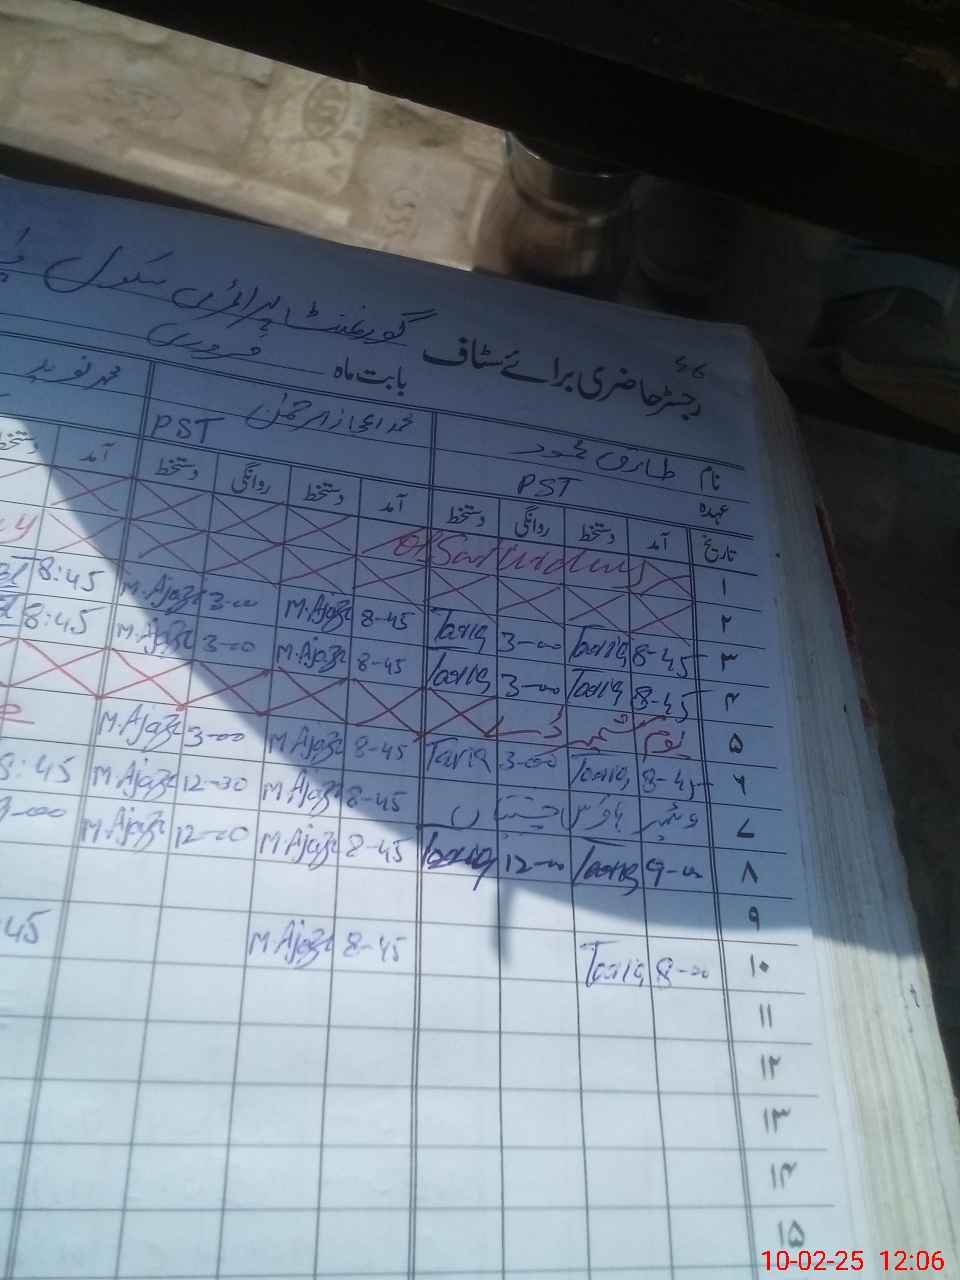 رجسٹر حاضری برائے سٹاف گورنمنٹ پرائمری سکول
بابت ماہ فروری
نام طارق محمود محمد اعجاز الرحمٰن محمد نوید
عہدہ PST PST
تاریخ آمد دستخط روانگی دستخط آمد دستخط روانگی دستخط آمد
۱ Saturday
۲
۳ 8-45 Tariq 3-00 Tariq 8-45 M.Ajaz 3-00 M.Ajaz 8:45
۴ 8-45 Tariq 3-00 Tariq 8-45 M.Ajaz 3-00 M.Ajaz 8:45
۵ یوم کشمیر
۶ 8-45 Tariq 3-00 Tariq 8-45 M.Ajaz 3-00 M.Ajaz
۷ 8-45 M.Ajaz 12-30 M.Ajaz 8:45
۸ 9-00 Tariq 12-00 Tariq 8-45 M.Ajaz 12-00 M.Ajaz
۹
۱۰ 8-00 Tariq 8-45 M.Ajaz :45
۱۱
۱۲
۱۳
۱۴
۱۵
10-02-25 12:06